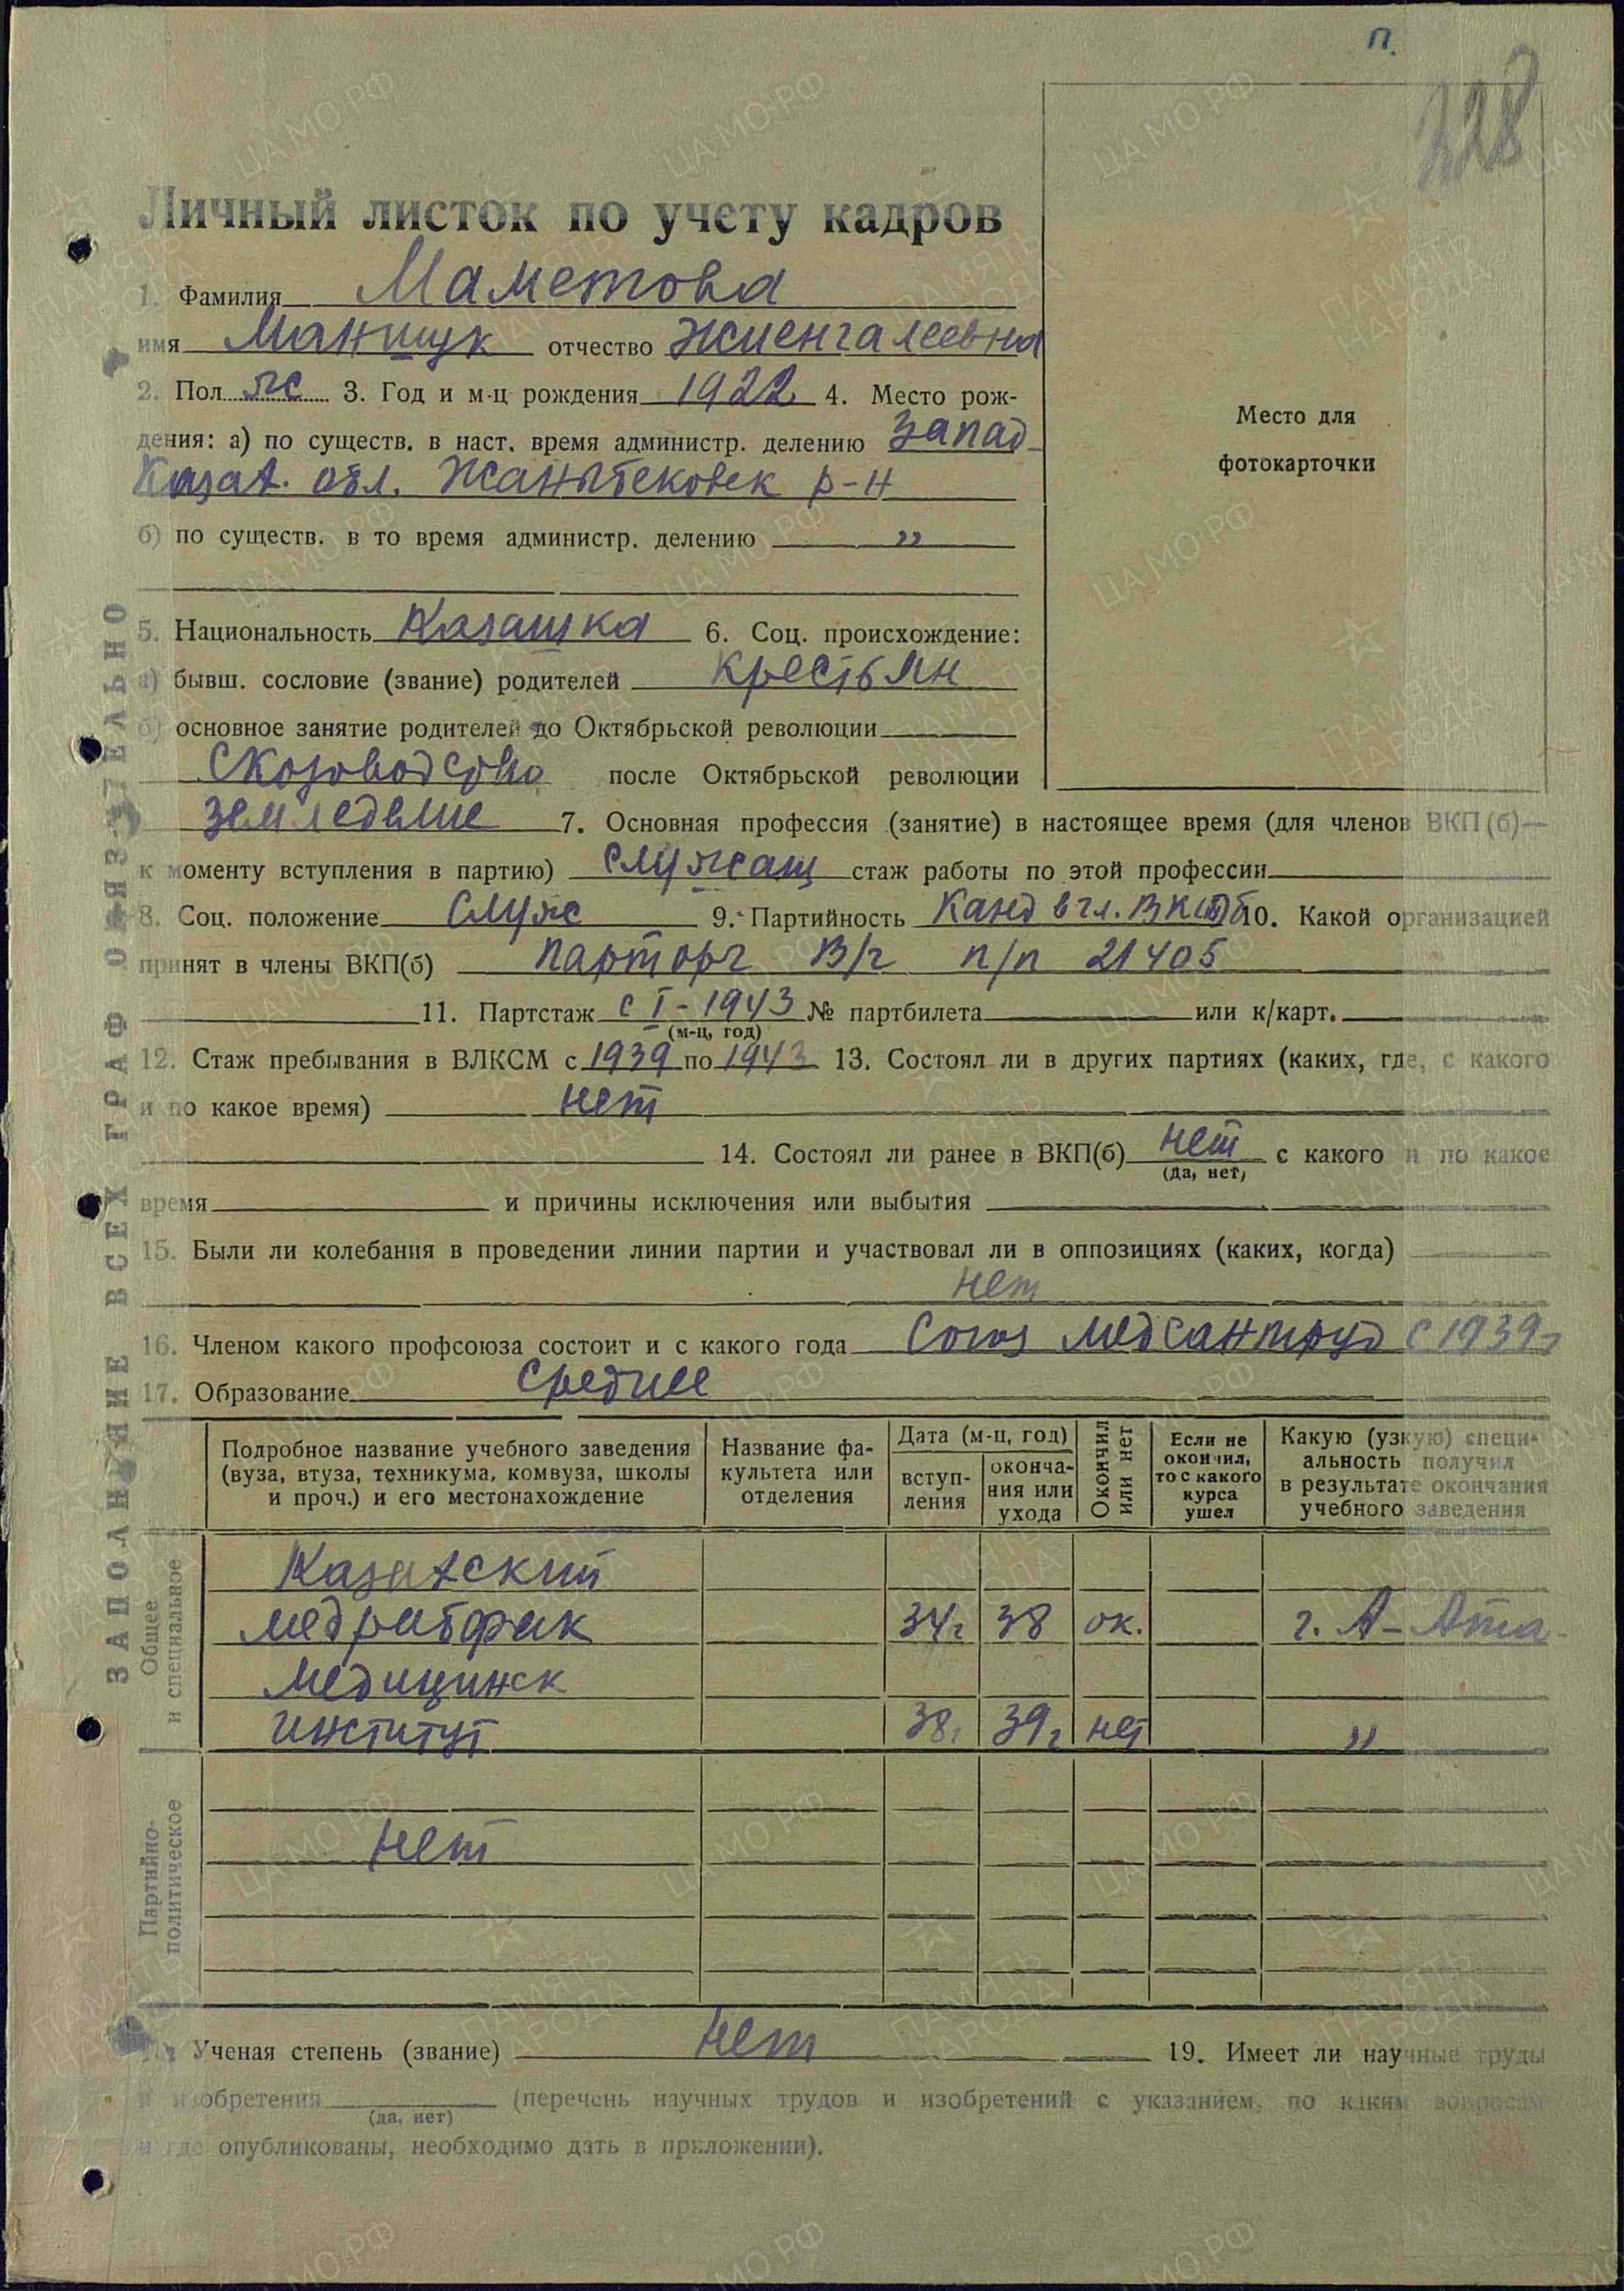 П.
228
Личный листок по учету кадров
1. Фамилия Маметова
имя Маншук отчество Жиенгалеевна
2. Пол ж 3. Год и м-ц рождения 1922 4. Место рож-
дения: а) по существ. в наст. время администр. делению Запад
Казах. обл. Жаныбековск р-н
б) по существ. в то время администр. делению „
Место для
фотокарточки
5. Национальность Казашка 6. Соц. происхождение:
а) бывш. сословие (звание) родителей крестьян
б) основное занятие родителей до Октябрьской революции
после Октябрьской революции
земледелие 7. Основная профессия (занятие) в настоящее время (для членов ВКП(б)—
к моменту вступления в партию) служащ стаж работы по этой профессии
8. Соц. положение служ 9. Партийность Канд в чл. ВКП(б) 10. Какой организацией
принят в члены ВКП(б) парторг В/ч п/п 21405
11. Партстаж с I-1943 № партбилета или к/карт.
(м-ц, год)
12. Стаж пребывания в ВЛКСМ с 1939 по 1943 13. Состоял ли в других партиях (каких, где, с какого
и по какое время) нет
14. Состоял ли ранее в ВКП(б) нет с какого и по какое
(да, нет)
время и причины исключения или выбытия
15. Были ли колебания в проведении линии партии и участвовал ли в оппозициях (каких, когда)
нет
16. Членом какого профсоюза состоит и с какого года Союз медсантруд с 1939г
17. Образование Среднее
Подробное название учебного заведения
(вуза, втуза, техникума, комвуза, школы
и проч.) и его местонахождение
Название фа-
культета или
отделения
Дата (м-ц, год)
вступ-
ления
оконча-
ния или
ухода
Окончил
или нет
Если не
окончил,
то с какого
курса
ушел
Какую (узкую) специ-
альность получил
в результате окончания
учебного заведения
Общее
и специальное
Казахский
медрабфак 34г 38 ок. г. А-Ата
Медицинск
институт 38г 39г нет „
Партийно-
политическое
нет
Ученая степень (звание) нет 19. Имеет ли научные труды
и изобретения (перечень научных трудов и изобретений с указанием, по каким вопросам
(да, нет)
и где опубликованы, необходимо дать в приложении).
ЗАПОЛНЕНИЕ ВСЕХ ГРАФ ОБЯЗАТЕЛЬНО
ЦА МО РФ
ПАМЯТЬ
НАРОДА